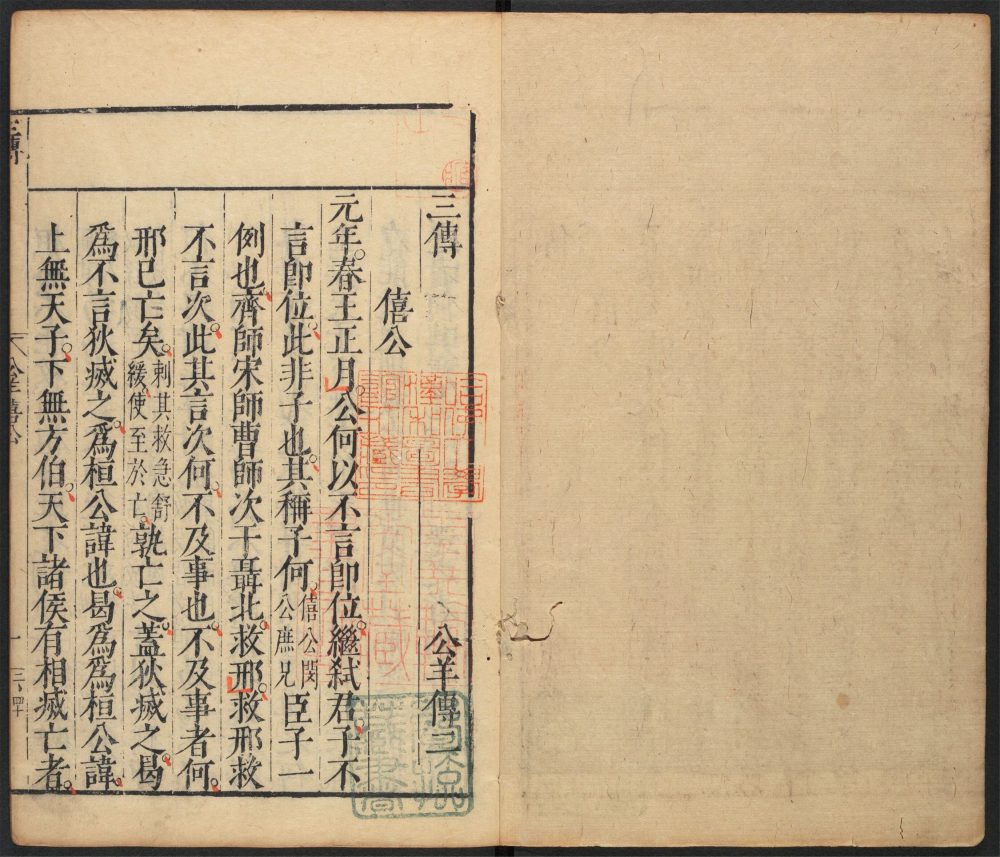 三傳 公羊傳二
僖公
元年。春王正月。公何以不言卽位。繼弑君子不
言卽位。此非子也。其稱子何。僖公閔公庶兄臣子一
例也。齊師宋師曹師次于聶北救邢。救邢救
不言次。此其言次何。不及事也。不及事者何。
邢已亡矣。刺其救急舒緩。使至於亡。孰亡之。蓋狄滅之。曷
爲不言狄滅之。爲桓公諱也。曷爲爲桓公諱。
上無天子。下無方伯。天下諸侯有相滅亡者。
三傳
公羊僖公
一